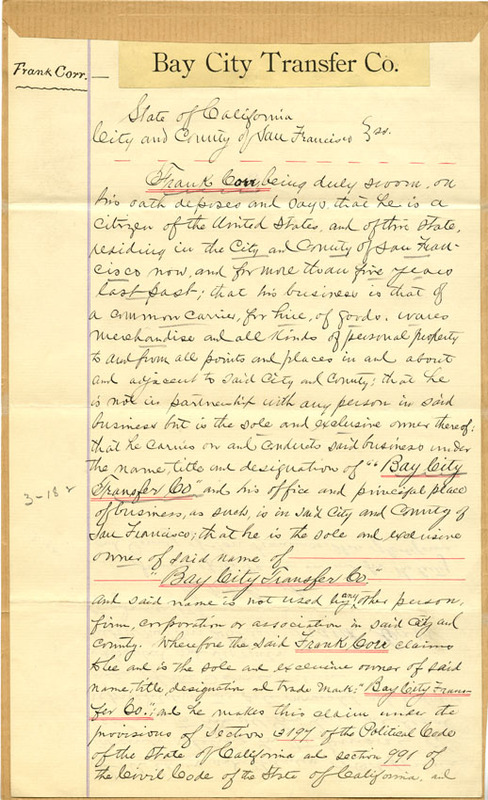 Bay City Transfer Co.
Frank Corr. —
State of California
City and County of San Francisco } ss.
Frank Corr, being duly sworn, on
his oath deposes and says, that he is a
citizen of the United States, and of this State,
residing in the City and County of San Fran-
cisco now, and for more than five years
last past; that his business is that of
a common carrier, for hire, of goods, wares
merchandise and all kinds of personal property
to and from all points and places in and about
and adjacent to said City and County; that he
is not in partnership with any person in said
business but is the sole and exclusive owner thereof;
that he carries on and conducts said business under
the name, title and designation of "Bay City
Transfer Co" and his office and principal place
of business, as such, is in said City and County of
San Francisco; that he is the sole and exclusive
owner of said name of
"Bay City Transfer Co."
and said name is not used by any other person,
firm, corporation or association in said City and
County. Wherefore the said Frank Corr claims
to be and is the sole and exclusive owner of said
name, title, designation and trade mark; "Bay City Trans-
fer Co."; and he makes this claim under the
provisions of Section 3197 of the Political Code
of the State of California and section 991 of
the Civil Code of the State of California, and